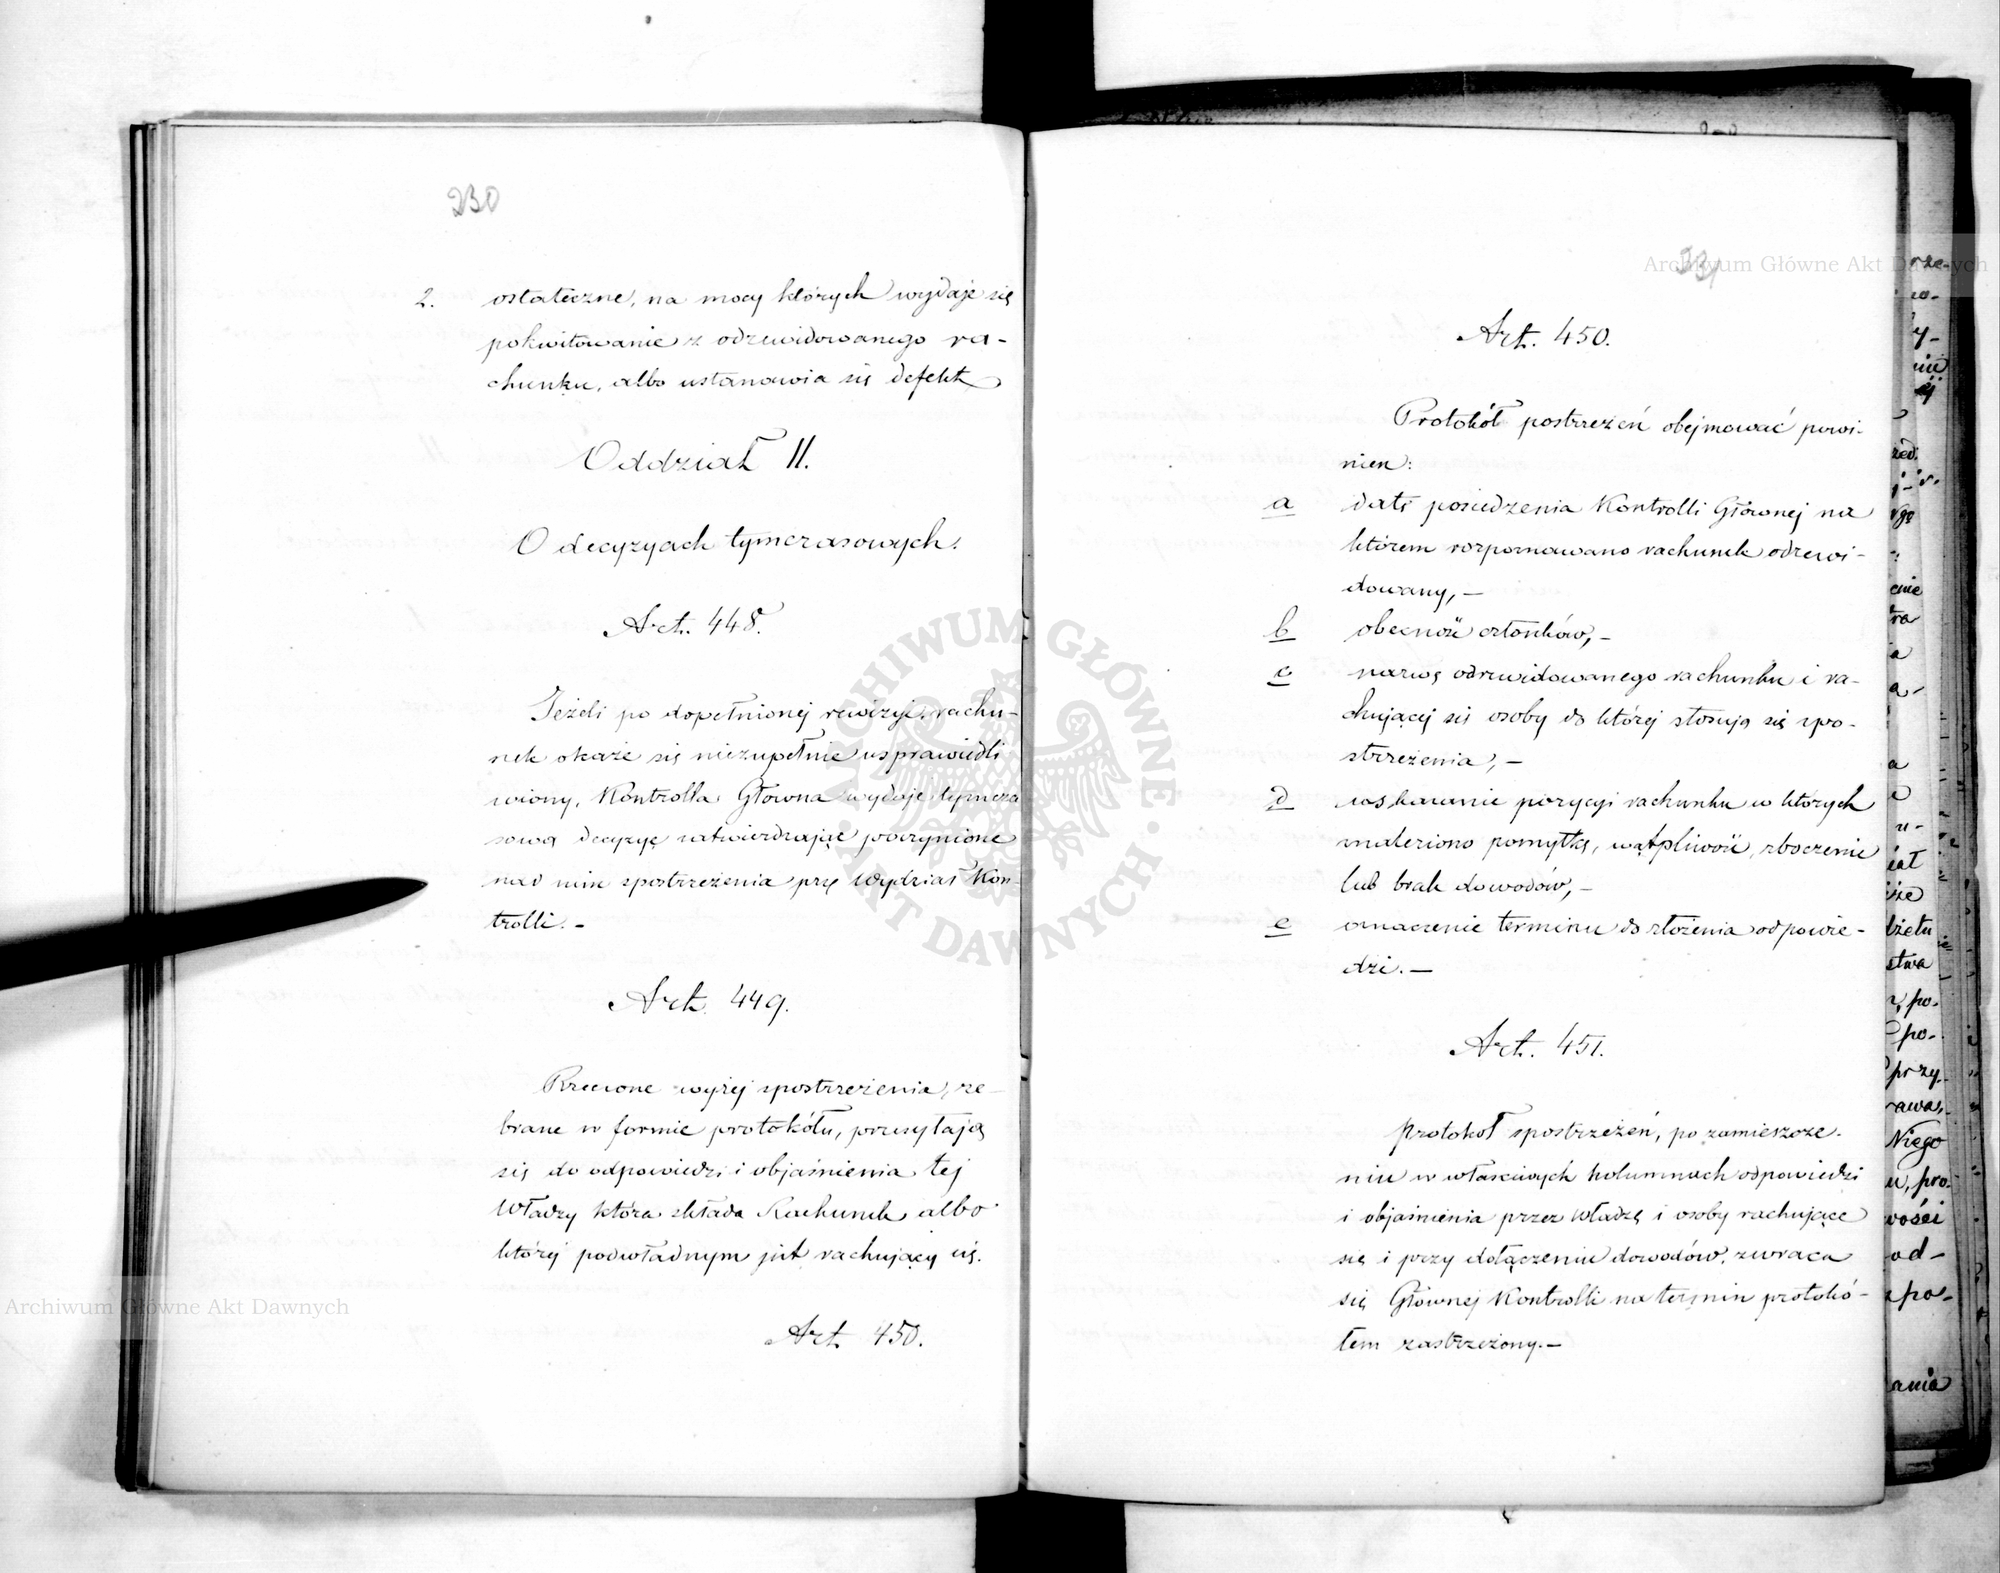 230
2. ostateczne, na mocy których wydaje się
pokwitowanie z odrewidowanego ra-
chunku, albo ustanowia się defekt
Oddział II.
O decyzyach tymczasowych.
Art. 448.
Jeżeli po dopełnionej rewizyi, rachu-
nek okaże się niezupełnie usprawiedli
wiony, Kontrolla Głowna wydaje tymcza
sową decyzyę zatwierdzając poczynione
nad nim spostrzeżenia prz Wydział Kon-
trolli. -
Art. 449.
Rzeczone wyżej spostrzeżenia, ze-
brane w formie protokółu, przesyłają
się do odpowiedzi i objaśnienia tej
Władzy która składa Rachunek albo
której podwładnym jest rachujący się.
Art. 450.
231
Art. 450.
Protokół postrzeżeń obejmować powi-
nien:
a datę posiedzenia Kontrolli Głównej na
którem rozpoznawano rachunek odrewi-
dowany, -
b obecność członków, -
c nazwę odrewidowanego rachunku i ra-
chującej się osoby do której stosują się spo-
strzeżenia, -
d wskazanie pozycyi rachunku w których
znaleziono pomyłkę, wątpliwość, zboczenie
lub brak dowodów, -
e oznaczenie terminu do złożenia odpowie-
dzi. -
Art. 451.
Protokół spostrzeżeń, po zamieszcze-
niu w właściwych kolumnach odpowiedzi
i objaśnienia przez Władzę i osoby rachujące
się i przy dołączeniu dowodów, zwraca
się Głównej Kontrolli na termin protokó-
łem zastrzeżony. -
Archiwum Główne Akt Dawnych
Archiwum Główne Akt Dawnych
ARCHIWUM GŁÓWNE
AKT DAWNYCH